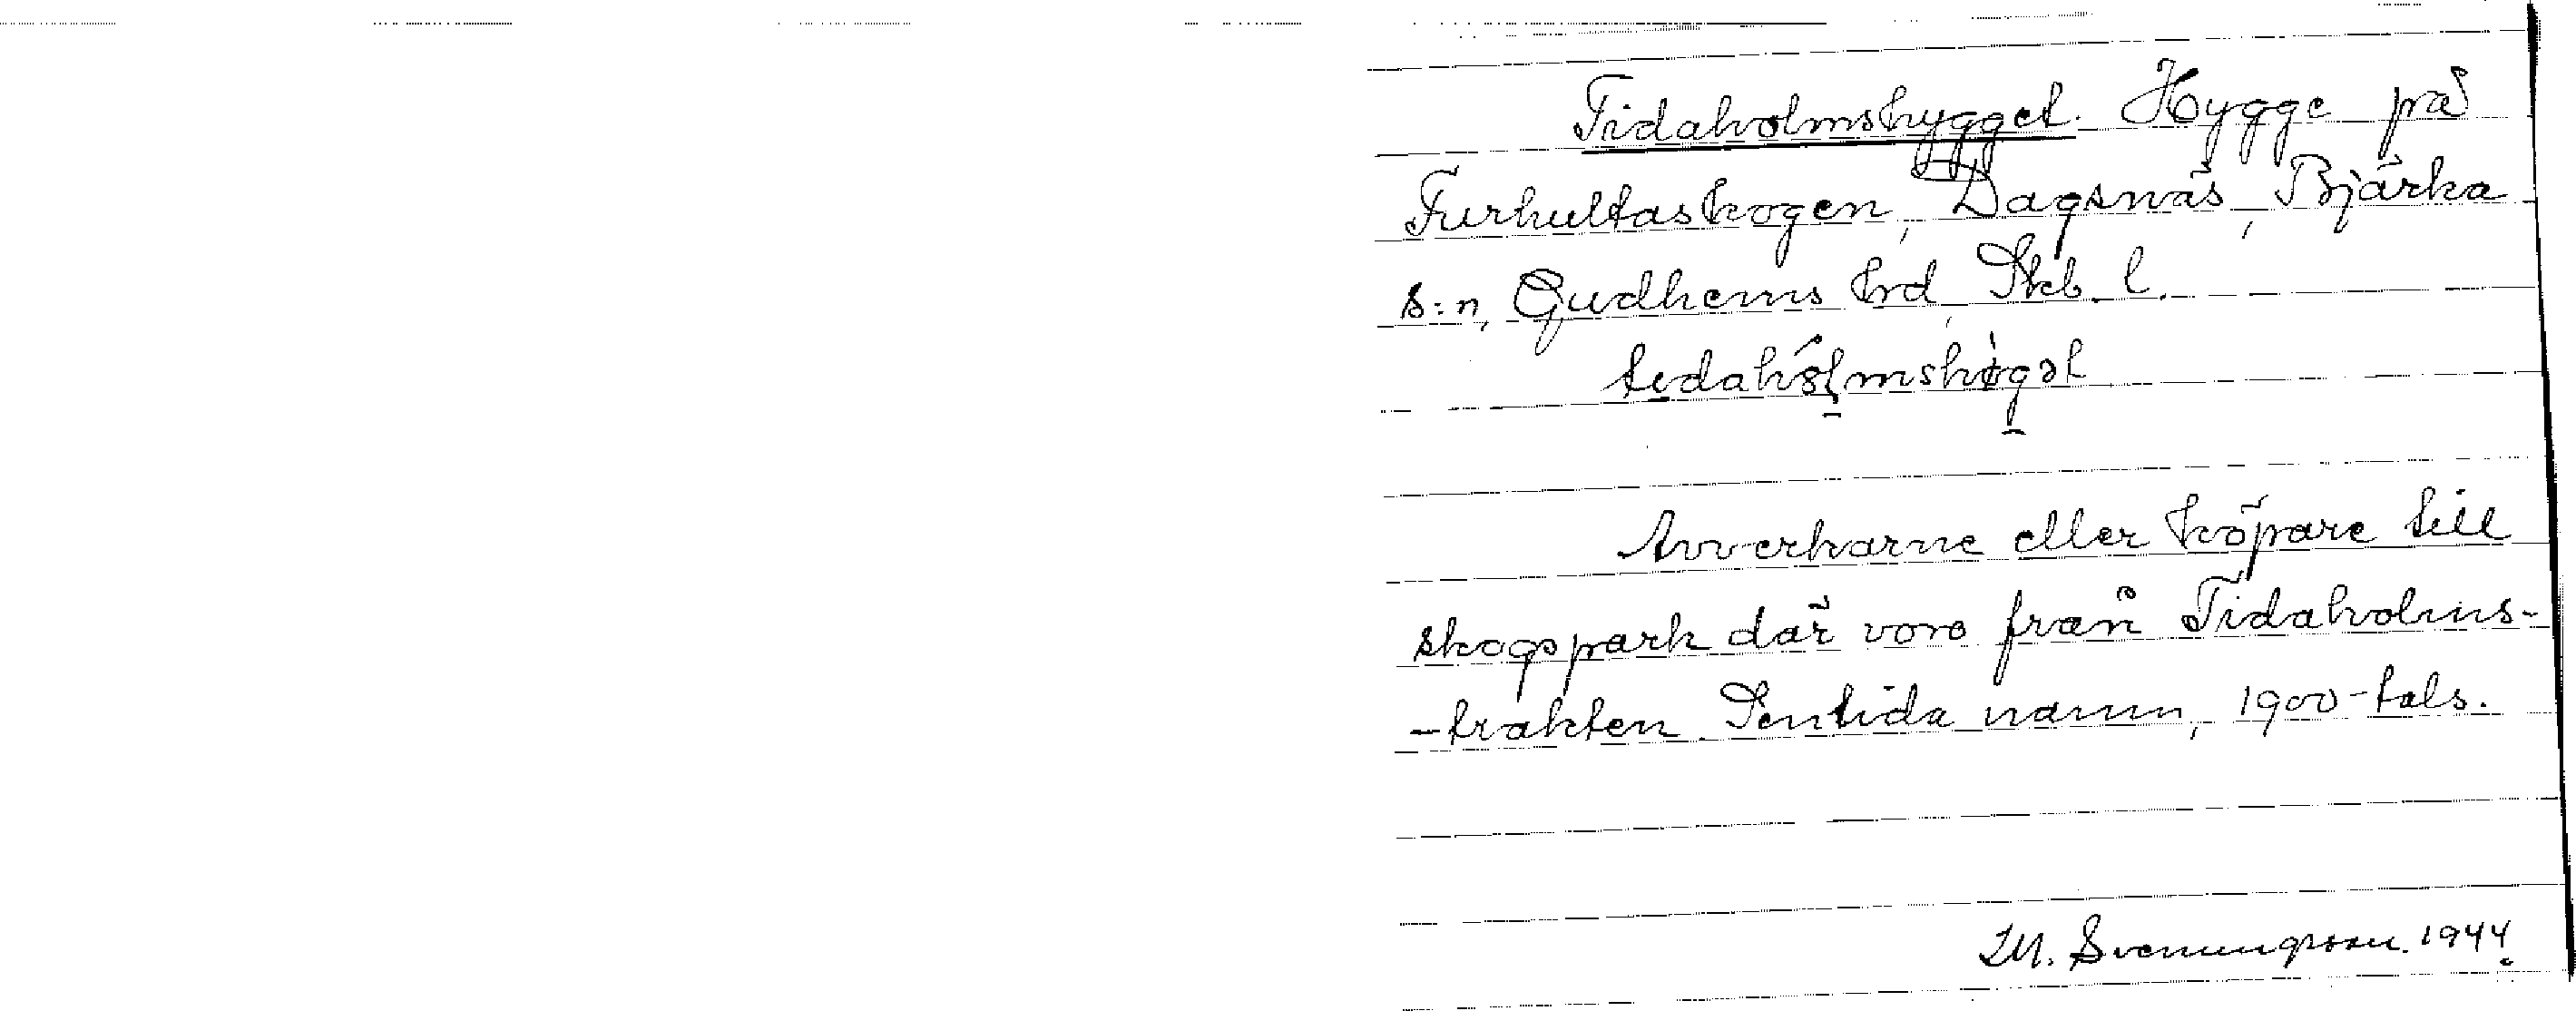 Tidaholmshygget. Hygge på
Furhultaskogen, Dagsnäs, Bjärka
s:n, Gudhems hrd, Skb. l.
Avverkarne eller köpare till
skogspark där voro från Tidaholms-
-trakten. Sentida namn, 1900-tals.
M. Svenungsson. 1944.